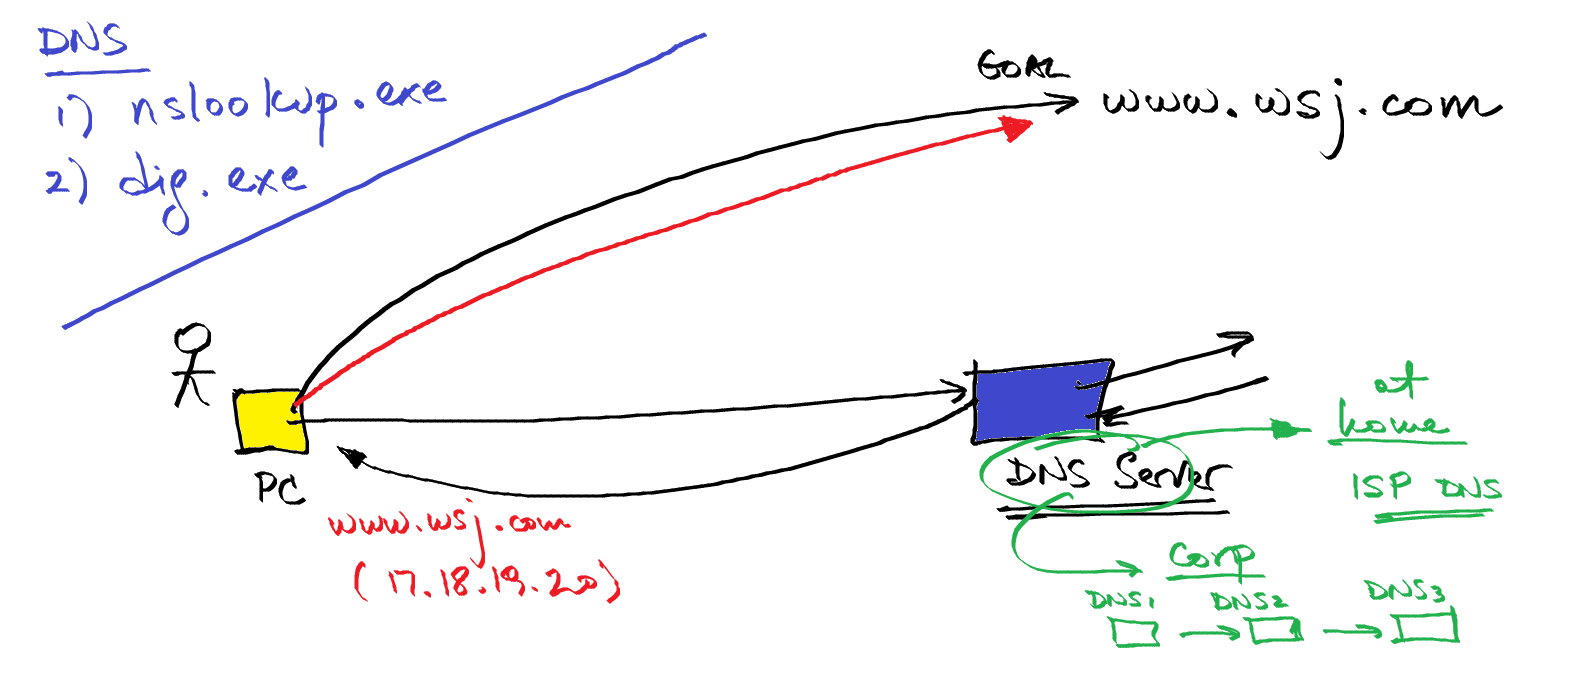 DNS
1) nslookup.exe
2) dig.exe
GOAL
www.wsj.com
PC
www.wsj.com
(17.18.19.20)
DNS Server
at
home
ISP DNS
Corp
DNS1
DNS2
DNS3